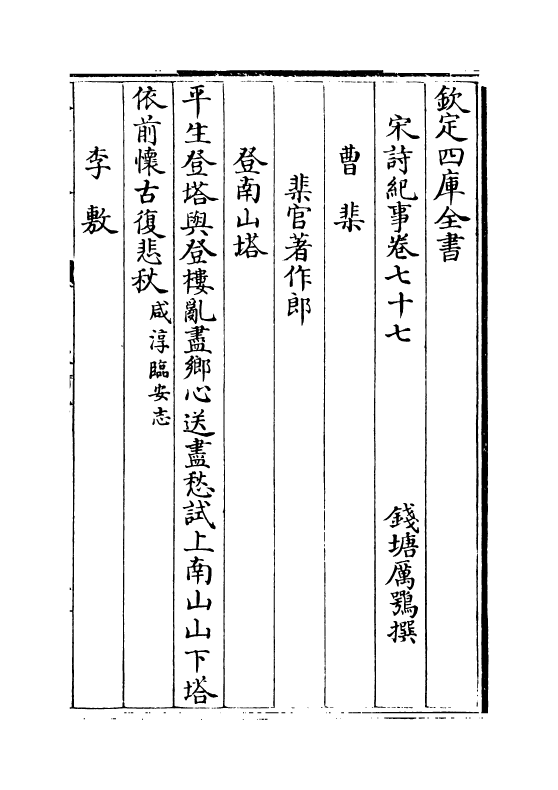 欽定四庫全書
宋詩紀事卷七十七 錢塘厲鶚撰
曹棐
棐官著作郎
登南山塔
平生登塔與登樓亂盡鄉心送盡愁試上南山山下塔
依前懷古復悲秋 咸淳臨安志
李敷